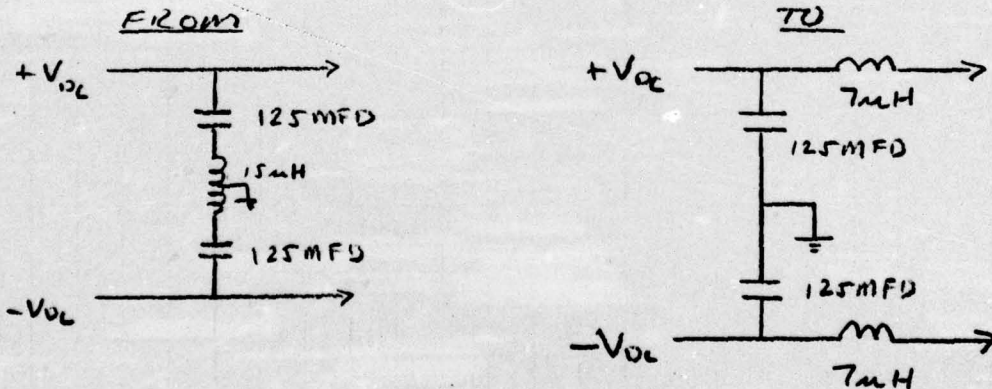 FROM
+VDC
125MFD
15uH
125MFD
-VDC
TO
+VDC
7uH
125MFD
125MFD
-VDC
7uH